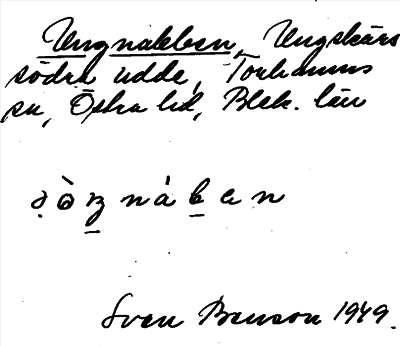 Ungnabben, Ungskärs
södra udde, Torhamns
sn, Östra hd, Blek. län
Sven Benson 1949.